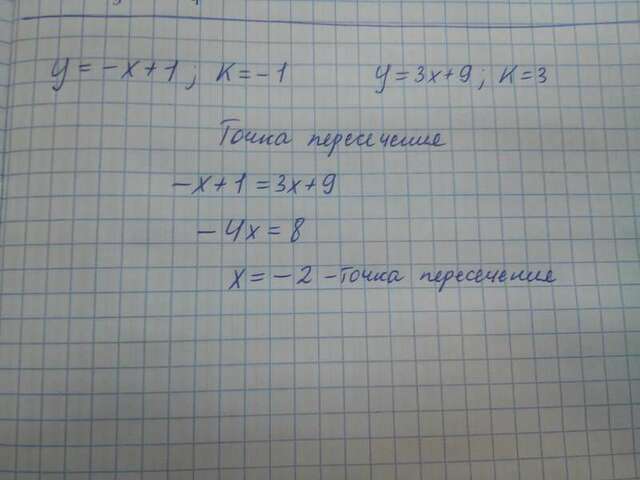 y = -x+1; K = -1 y = 3x+9; K = 3
Точка пересечения
-x+1 = 3x+9
-4x = 8
x = -2 - точка пересечения